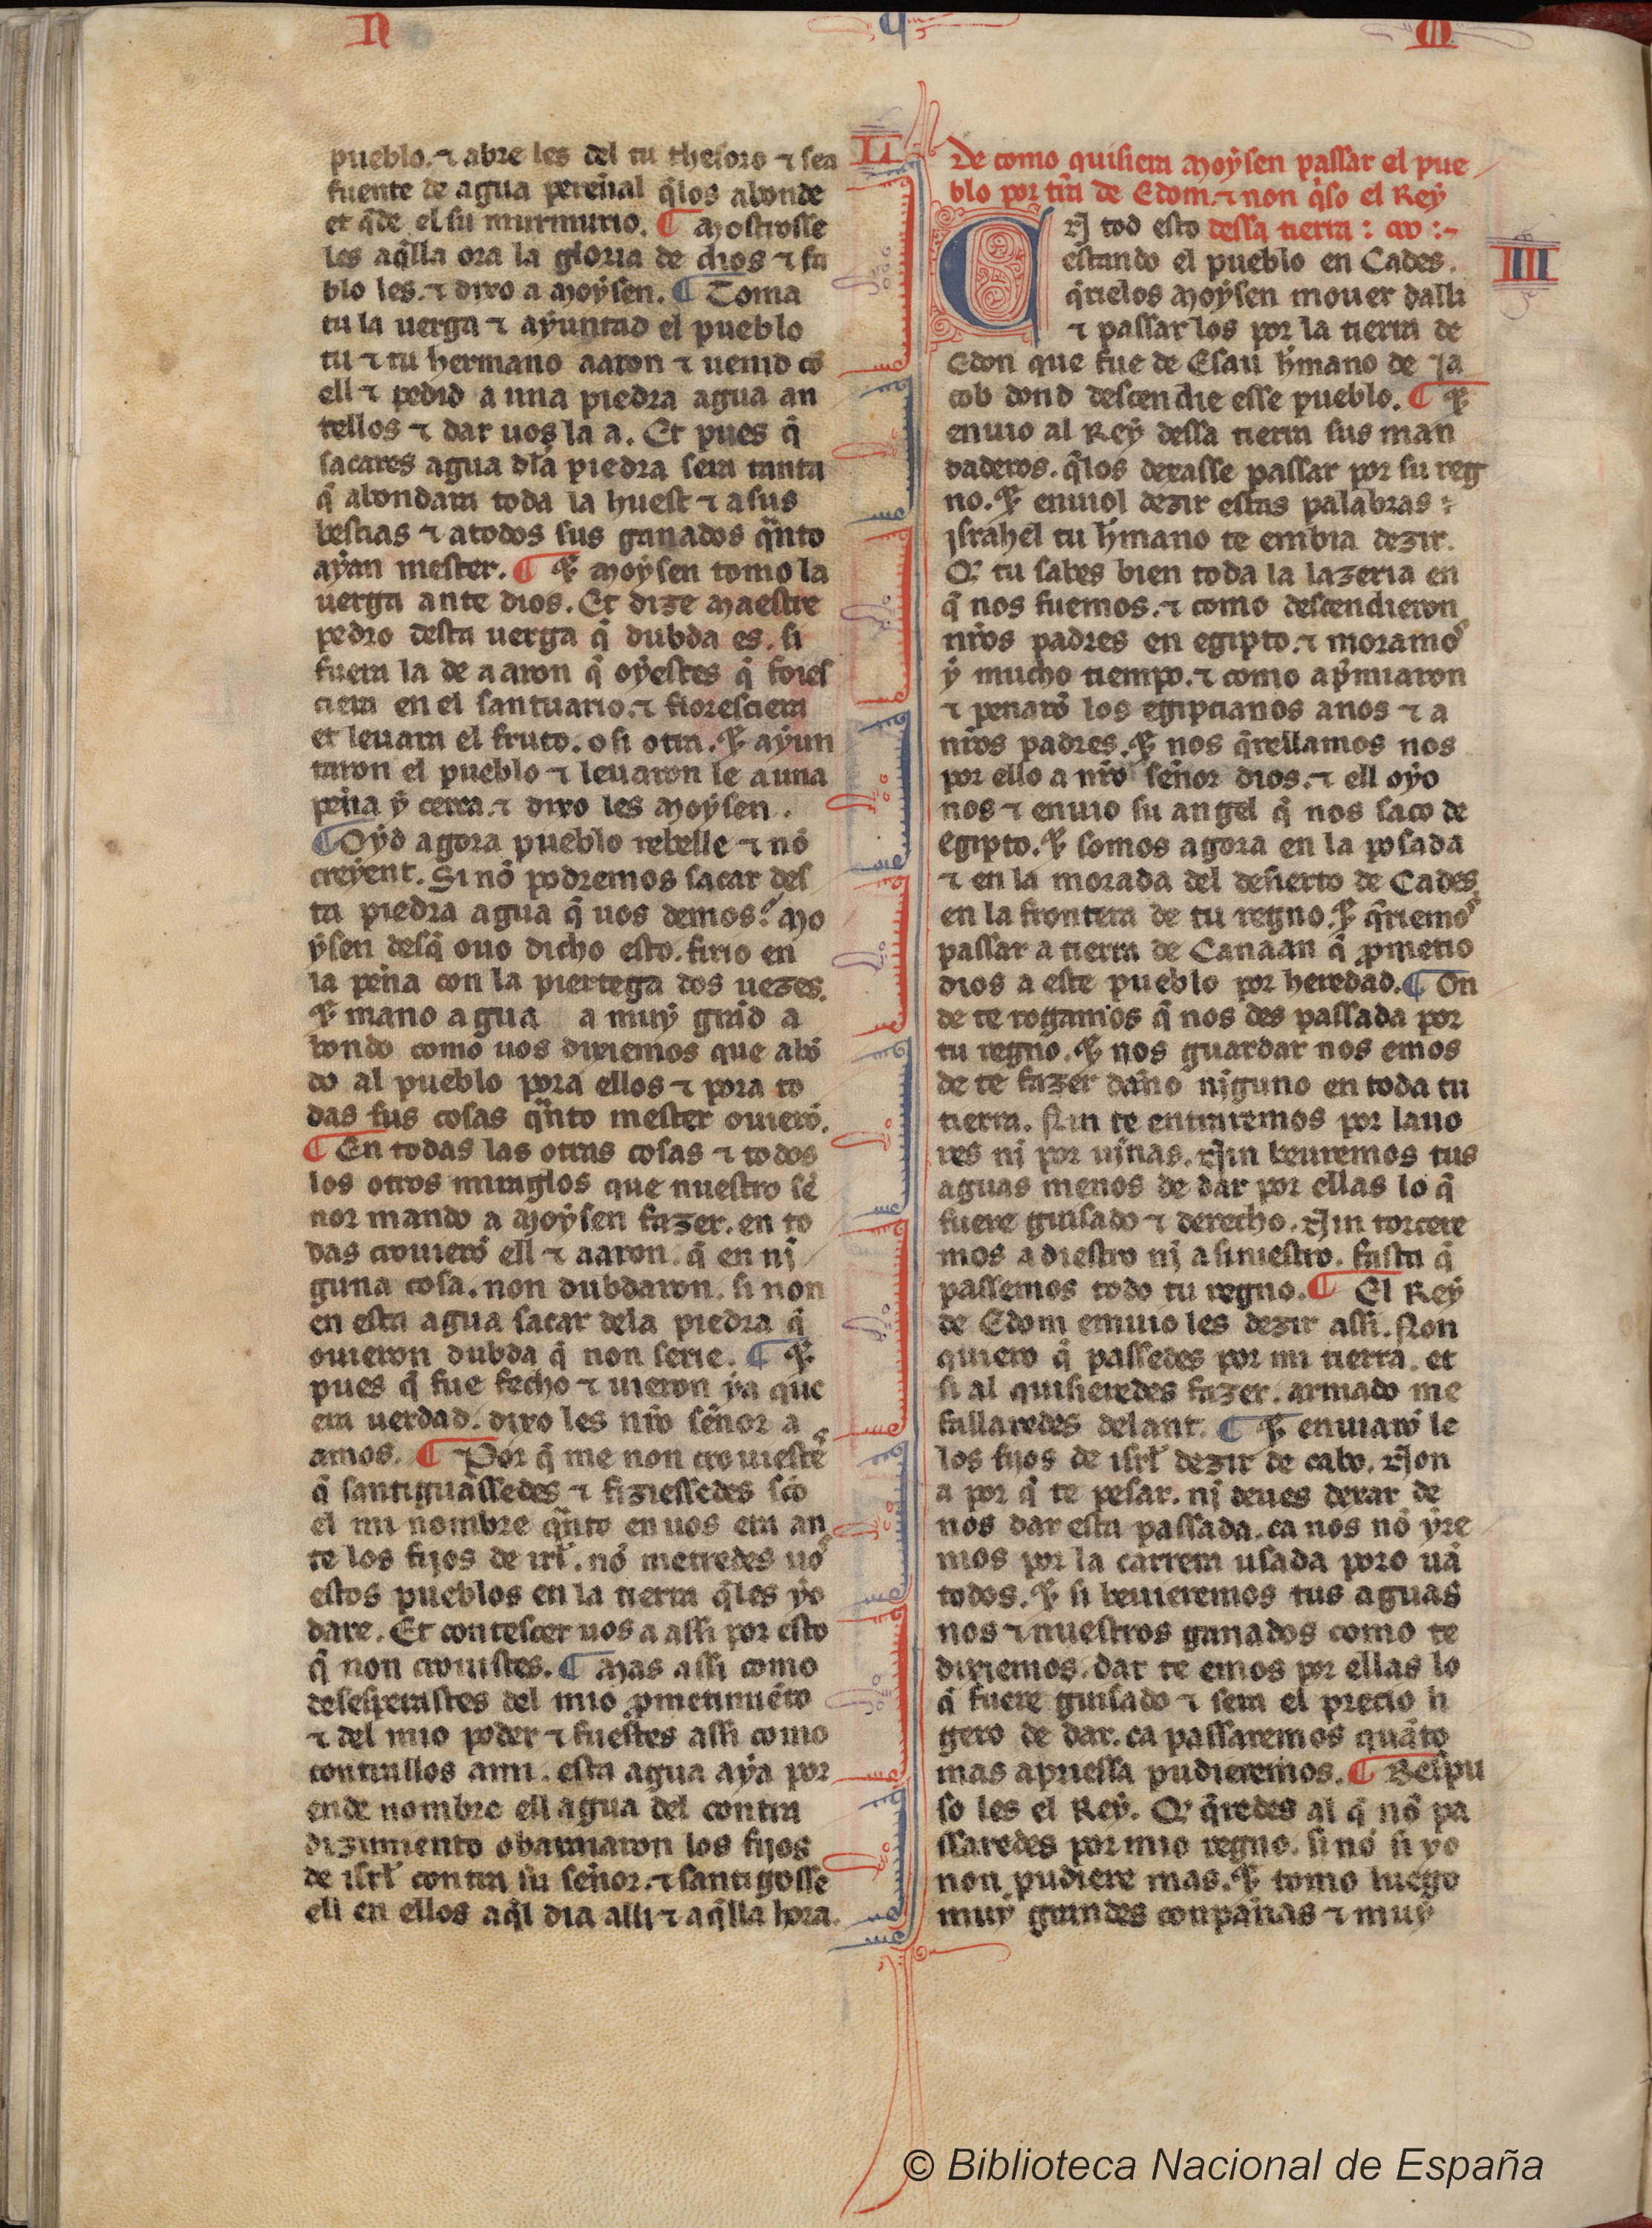 N
pueblo. ⁊ abre les del tu thesoro ⁊ sea
fuente de agua pereñal q̃los abonde
et q̃de el su murmurio. ¶ Mostrosse
les aq̃lla ora la gloria de dios ⁊ fa
blo les. ⁊ dixo a Moẏsen. ¶ Toma
tu la uerga ⁊ aẏuntad el pueblo
tu ⁊ tu hermano aaron ⁊ uenid cõ
ell ⁊ pedid a una piedra agua an
tellos ⁊ dar uos la a. Et pues q̃
sacares agua dla piedra sera tanta
q̃ abondara toda la huest ⁊ a sus
bestias ⁊ atodos sus ganados qñto
aẏan mester. ¶ ⁊ Moẏsen tomo la
uerga ante dios. Et dize Maestre
pedro desta uerga q̃ dubda es. si
fuera la de aaron q̃ oẏestes q̃ flores
ciera en el santuario. ⁊ floresciera
et leuara el fruto. o si otra. ⁊ aẏun
taron el pueblo ⁊ leuaron le a una
peña ẏ cerca. ⁊ dixo les Moẏsen.
¶ Oẏd agora pueblo rebelle ⁊ nõ
creẏent. Si nõ podremos sacar des
ta piedra agua q̃ uos demos? Mo
ẏsen desq̃ ouo dicho esto. firio en
la peña con la piertega dos uezes.
⁊ mano agua a muẏ grãd a
bondo como uos dixiemos que abõ
do al pueblo pora ellos ⁊ pora to
das sus cosas qñto mester ouierõ.
¶ En todas las otras cosas ⁊ todos
los otros miraglos que nuestro se
ñor mando a Moẏsen fazer. en to
das crouierõ ell ⁊ aaron. q̃ en nĩ
guna cosa. non dubdaron. si non
en esta agua sacar dela piedra q̃
ouieron dubda q̃ non serie. ¶ ⁊
pues q̃ fue fecho ⁊ uieron ẏa que
era uerdad. dixo les nr̃o señor a
amos. ¶ Por q̃ me non crouieste
q̃ santiguassedes ⁊ fiziessedes sc̃o
el mi nombre qñto en uos era an
te los fijos de irl̃. nõ metredes uos
estos pueblos en la tierra q̃les ẏo
dare. Et contescer uos a assi por esto
q̃ non crouistes. ¶ Mas assi como
desesperastes del mio prometimiẽto
⁊ del mio poder ⁊ fuestes assi como
contrallos ami. esta agua aẏa por
ende nombre ell agua del contra
dizimiento o baraiaron los fijos
de isrl̃ contra su señor. ⁊ santigosse
ell en ellos aq̃l dia alli ⁊ aq̃lla hora.
LI
De como quisiera Moẏsen passar el pue
blo por tr̃ra de Edom. ⁊ non q̃so el Reẏ
dessa tierra : :-
IIII
EN tod esto
estando el pueblo en Cades.
q̃rielos Moẏsen mouer dalli
⁊ passar los por la tierra de
Edon que fue de Esau hr̃mano de Ja
cob dond descendie esse pueblo. ¶ ⁊
enuio al Reẏ dessa tierra sus man
daderos. q̃los dexasse passar por su reg
no. ⁊ enuiol dezir estas palabras :
jsrahel tu hr̃mano te embia dezir.
Q̃ tu sabes bien toda la lazeria en
q̃ nos fuemos. ⁊ como descendieron
nr̃os padres en egipto. ⁊ moramos
ẏ mucho tiempo. ⁊ como apmiaron
⁊ penarõ los egiptianos anos ⁊ a
nr̃os padres. ⁊ nos q̃rellamos nos
por ello a nr̃o señor dios. ⁊ ell oẏo
nos ⁊ enuio su angel q̃ nos saco de
egipto. ⁊ somos agora en la posada
⁊ en la morada del desierto de Cades.
en la frontera de tu regno. ⁊ q̃riemos
passar a tierra de Canaan q̃ pmetio
dios a este pueblo por heredad. ¶ On
de te rogamos q̃ nos des passada por
tu regno. ⁊ nos guardar nos emos
de te fazer daño nĩguno en toda tu
tierra. Nin te entraremos por lauo
res nĩ por uiñas. Nin beuremos tus
aguas menos de dar por ellas lo q̃
fuere guisado ⁊ derecho. Nin torcere
mos a diestro nĩ a siniestro. fasta q̃
passemos todo tu regno. ¶ El Reẏ
de Edom enuio les dezir assi. Non
quiero q̃ passedes por mi tierra. et
si al quisieredes fazer. armado me
fallaredes delant. ¶ ⁊ enuiarõ le
los fijos de isrl̃ dezir de cabo. Non
a por q̃ te pesar. nĩ deues dexar de
nos dar esta passada. ca nos nõ ẏre
mos por la carrera usada poro uã
todos. ⁊ si beuieremos tus aguas
nos ⁊ nuestros ganados como te
dixiemos. dar te emos por ellas lo
q̃ fuere guisado ⁊ sera el precio li
gero de dar. ca passaremos quãto
mas apriessa pudieremos. ¶ Respu
so les el Reẏ. Q̃ q̃redes al q̃ nõ pa
ssaredes por mio regno. si nõ si yo
non pudiere mas. ⁊ tomo luego
muẏ grandes conpañas ⁊ muẏ
© Biblioteca Nacional de España